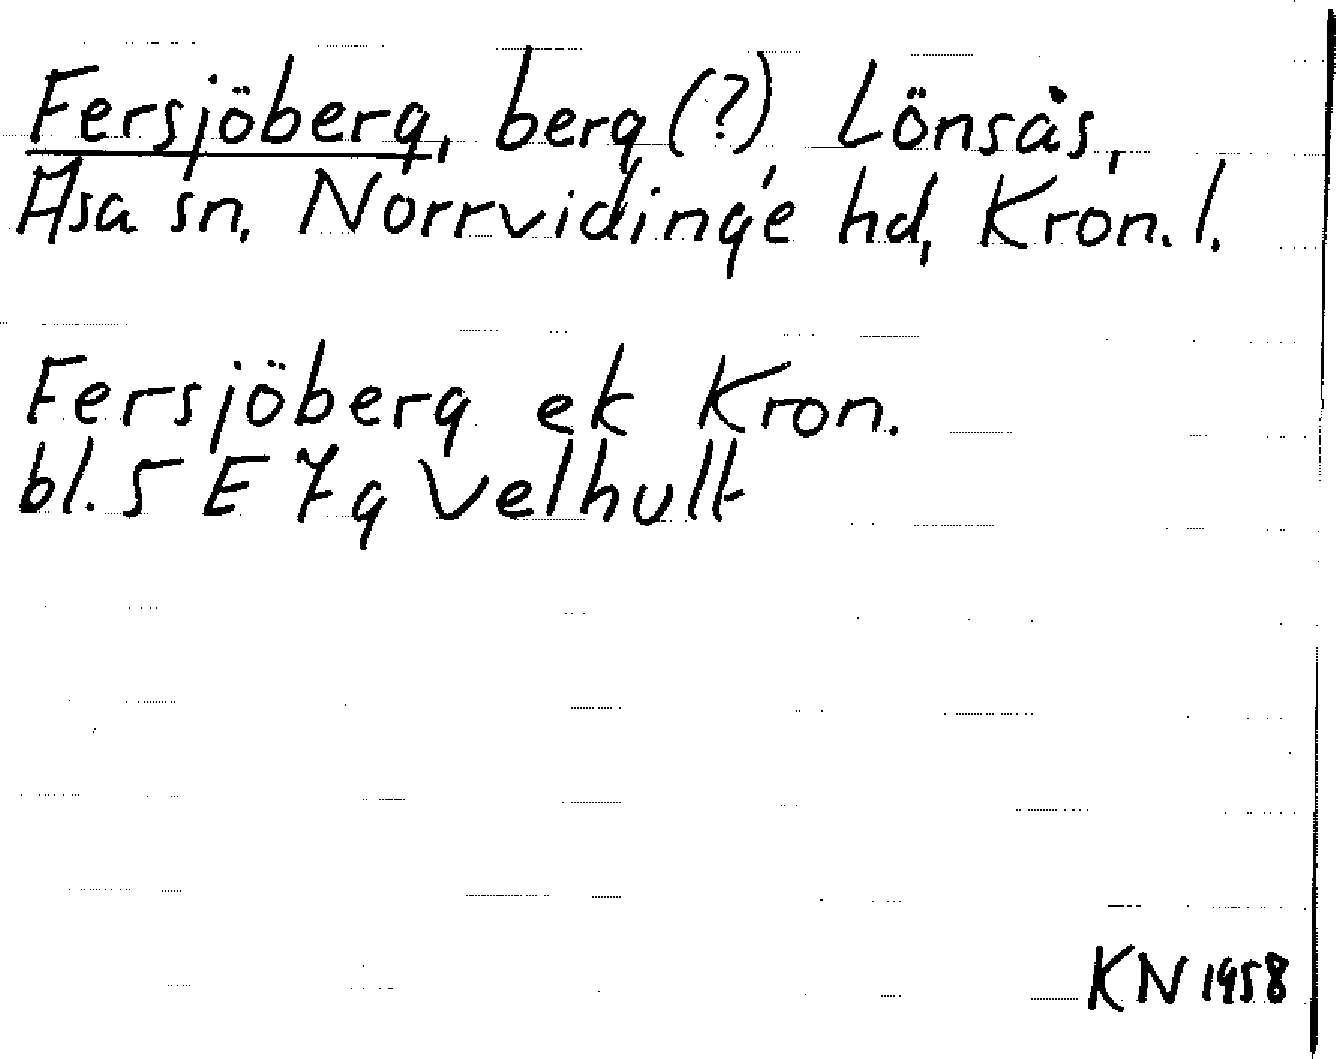 Fersjöberg, berg (?), Lönsås,
Åsa sn, Norrvidinge hd, Kron. l.
Fersjöberg ek Kron.
bl. 5 E 7g Velhult
KN 1958